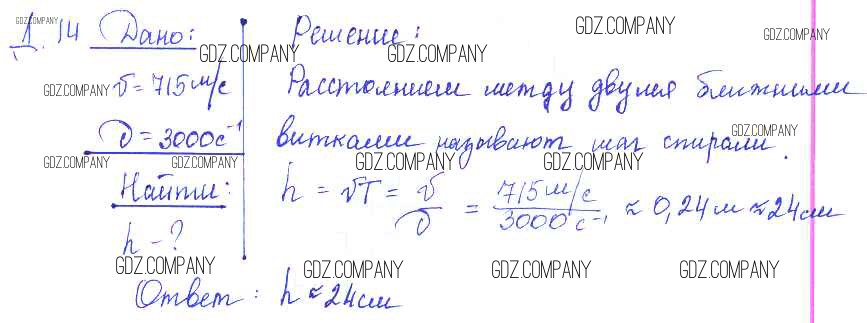 GDZ.COMPANY
1.14 Дано: Решение:
GDZ.COMPANY GDZ.COMPANY GDZ.COMPANY GDZ.COMPANY
υ = 715 м/с Расстоянием между двумя ближними
GDZ.COMPANY GDZ.COMPANY GDZ.COMPANY
ν = 3000 с⁻¹ витками называют шаг спирали.
GDZ.COMPANY
GDZ.COMPANY GDZ.COMPANY GDZ.COMPANY GDZ.COMPANY
Найти: h = υT = υ/ν = 715 м/с / 3000 с⁻¹ ≈ 0,24 м ≈ 24 см
h - ?
GDZ.COMPANY GDZ.COMPANY GDZ.COMPANY GDZ.COMPANY
Ответ: h ≈ 24 см